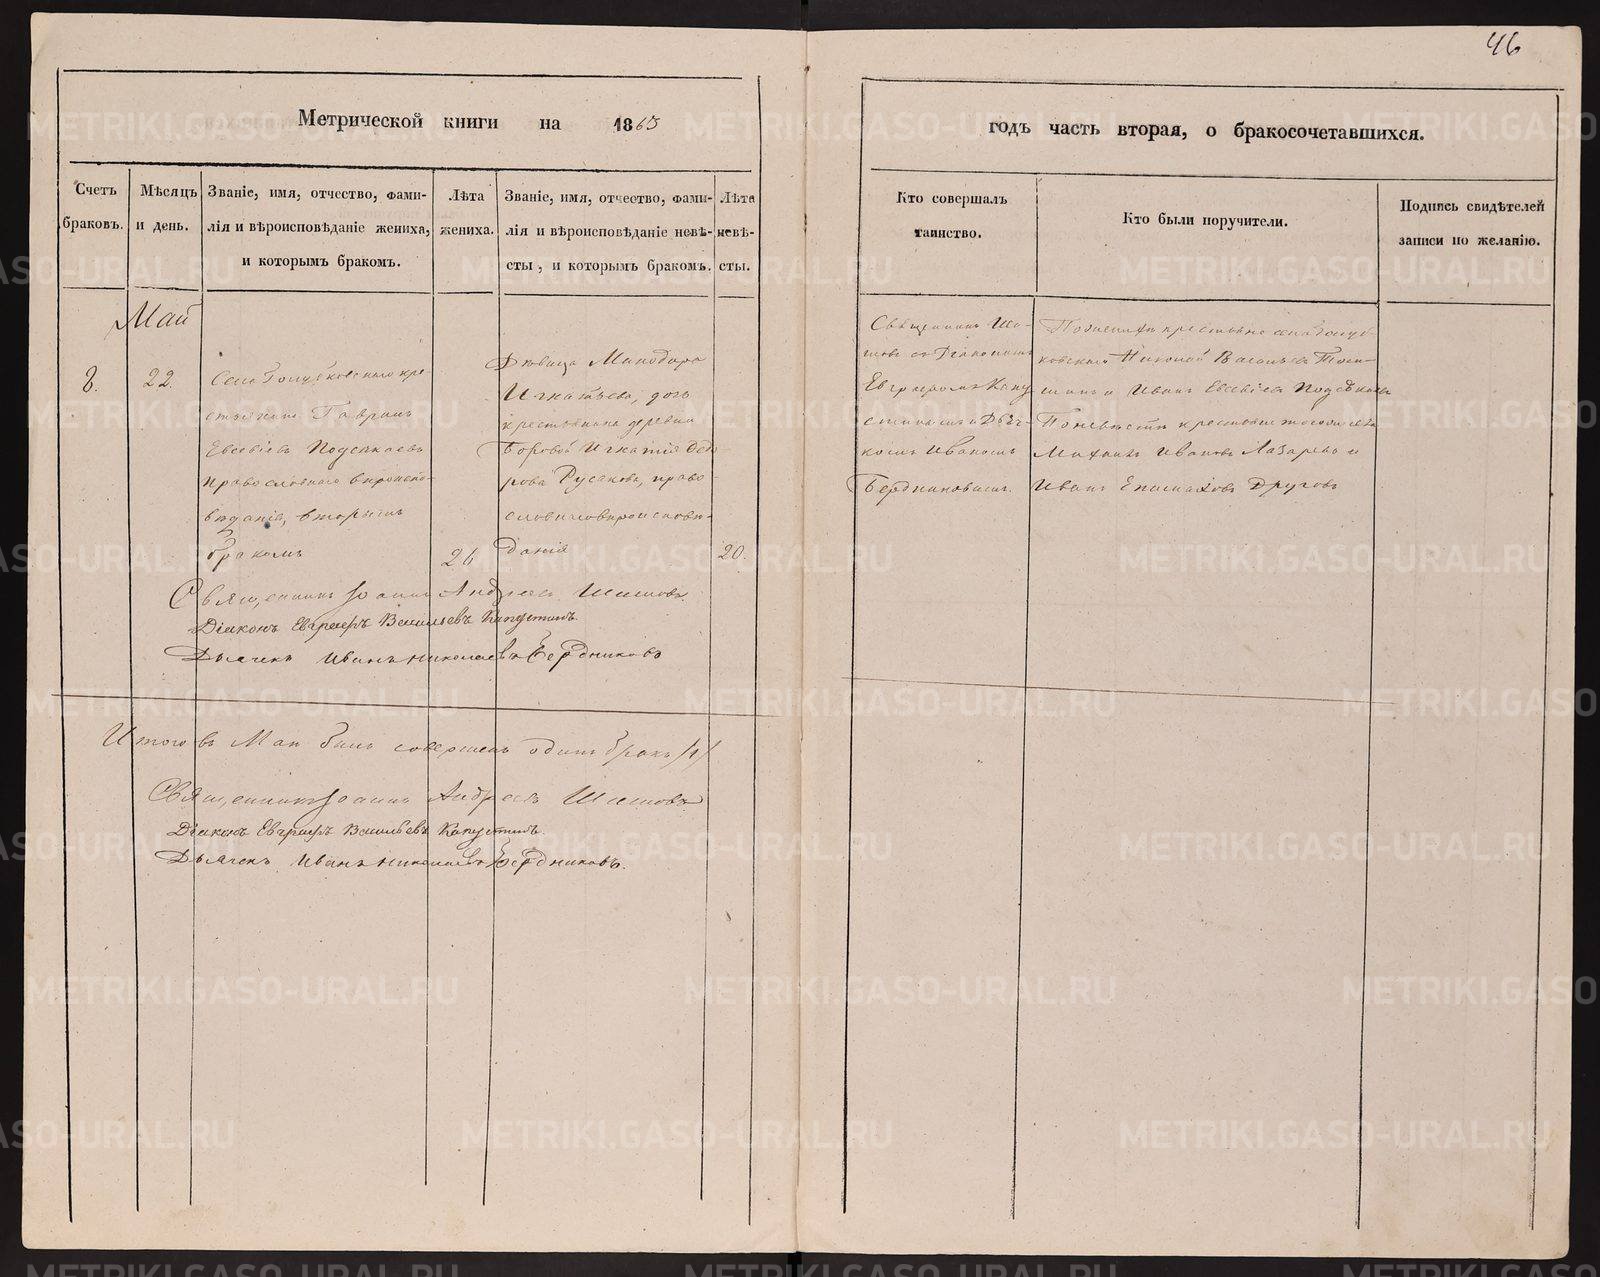 46
Метрической книги на 1863
годъ часть вторая, о бракосочетавшихся.
Счетъ браковъ.
Мѣсяцъ и день.
Званіе, имя, отчество, фами-
лія и вѣроисповѣданіе жениха,
и которымъ бракомъ.
Лѣта
жениха.
Званіе, имя, отчество, фами-
лія и вѣроисповѣданіе невѣ-
сты, и которымъ бракомъ.
Лѣта
невѣ-
сты.
Кто совершалъ
таинство.
Кто были поручители.
Подпись свидѣтелей
записи по желанію.
Май
8.
22.
Села Голубковскаго кре
стьянинъ Гаврилъ
Евсевіевъ Подсѣкаевъ
православнаго вѣроиспо-
вѣданія, вторымъ
бракомъ
26
Дѣвица Минодора
Игнатьева, дочь
крестьянина деревни
Боровой Игнатія Федо-
рова Русакова, право-
славнаго вѣроисповѣ-
данія
20.
Священникъ Ши-
шовъ съ Діакономъ
Евграфомъ Капу
стинымъ и Дьяч-
комъ Иваномъ
Бердниковымъ.
По женихѣ крестьяне села Голуб-
ковскаго Николай Васильевъ
и Иванъ Евсевіевъ Подсѣкаевъ
По невѣстѣ крестьяне того же села
Михаилъ Ивановъ Лазаревъ и
Иванъ Епимаховъ Друговъ
Священникъ Іоаннъ Андреевъ Шишовъ
Діаконъ Евграфъ Васильевъ Капустинъ.
Дьячекъ Иванъ Николаевъ Бердниковъ
Итого въ Маи былъ совершенъ одинъ бракъ /1/
Священникъ Іоаннъ Андреевъ Шишовъ
Діаконъ Евграфъ Васильевъ Капустинъ.
Дьячекъ Иванъ Николаевъ Бердниковъ.
METRIKI.GASO-URAL.RU